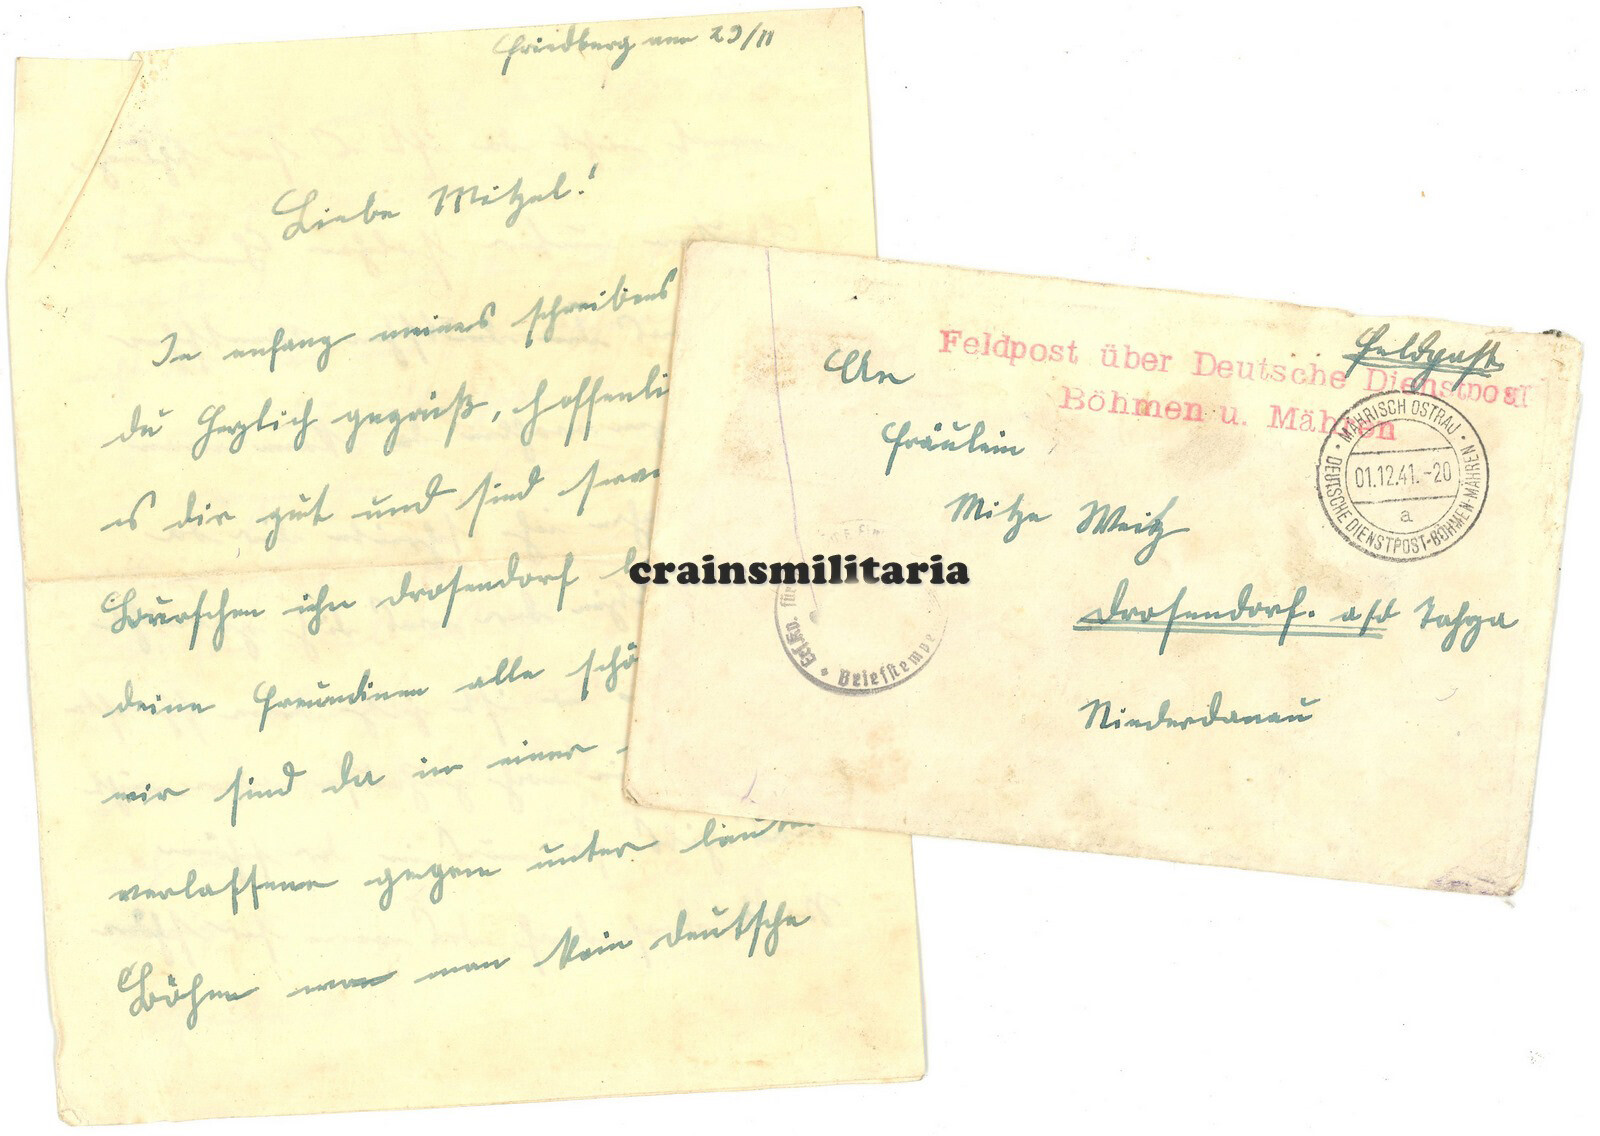 Friedberg am 29/11
Liebe Mitzel!
In anfang meines schreibens
du Herzlich gegrüß, hoffentli
es dir gut und sind
Burschen ihn Drosendorf
deine Freundinen alle schö
wir sind da in einer
verlassene gegen unter lauter
Böhm man kein deutsche
Feldpost
Feldpost über Deutsche Dienstpost
Böhmen u. Mähren
An
Fräulein
Mitze Weitz
Drosendorf. a/d Tahya
Niederdanau
MÄHRISCH OSTRAU
01.12.41.-20
a
DEUTSCHE DIENSTPOST-BÖHMEN-MÄHREN
Briefstempel
crainsmilitaria